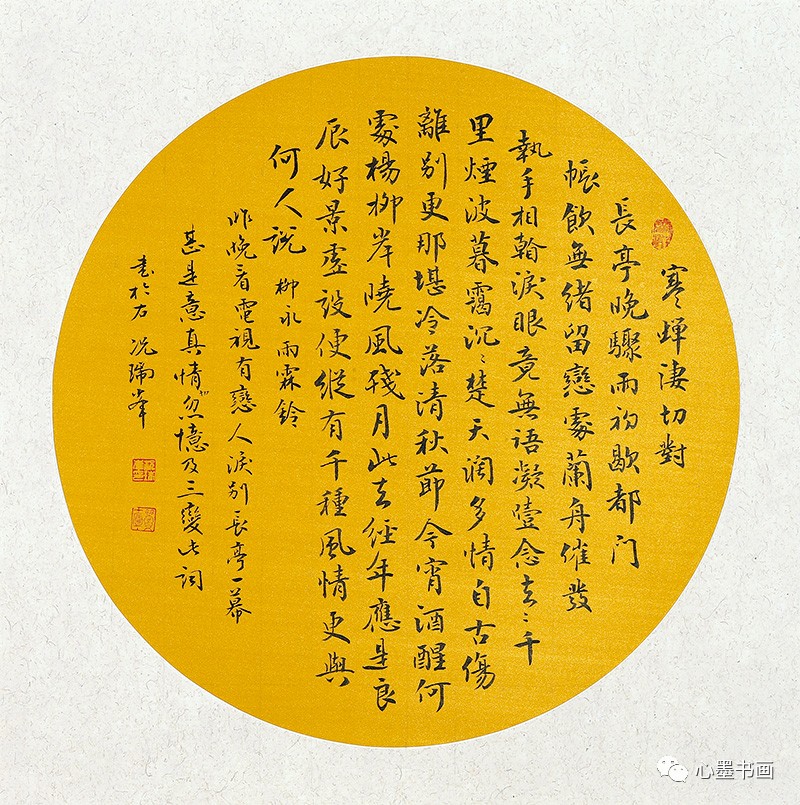 寒蝉淒切對
長亭晚驟雨初歇都门
帳飲無緒留戀處蘭舟催發
執手相翰淚眼竟無語凝壹念去〻千
里煙波暮靄沉〻楚天阔多情自古傷
離别更那堪冷落清秋節今宵酒醒何
處楊柳岸曉風殘月此去經年應是良
辰好景虛設便縱有千種風情更與
何人說 柳永雨霖鈴
昨晚看電視有戀人淚别長亭一幕
甚是意真情忽憶及三變此詞
書於右 况瑞峯
心墨书画